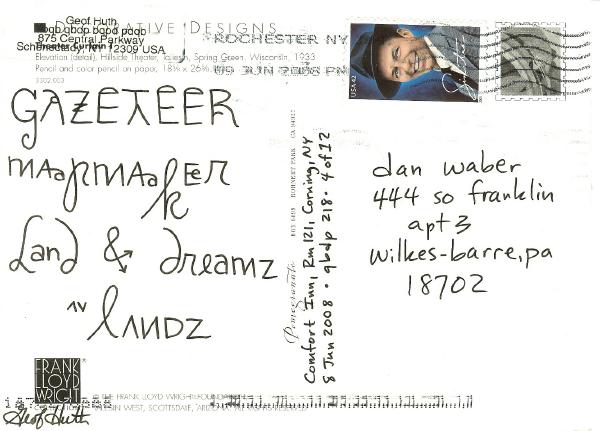 Geof Huth
qbqb qbdp bapd paqb
875 Central Parkway
Schenectady, NY 12309 USA
Theater Curtain 1
Elevation (detail), Hillside Theater, Taliesin, Spring Green, Wisconsin, 1933
Pencil and color pencil on paper
ROCHESTER NY
09 JUN 2008 PM
USA 42
GAZETEER
maapmaaker
land & dreamz
landz
BOX 6099 ROHNERT PARK CA 94927
Pomegranate
Comfort Inn, Rm 121, Corning, NY
8 Jun 2008 · qbdp 218 · 4 of 12
dan waber
444 so franklin
apt 3
wilkes-barre, pa
18702
FRANK
LLOYD
WRIGHT
© THE FRANK LLOYD WRIGHT FOUNDATION
TALIESIN WEST, SCOTTSDALE, ARIZONA. ALL RIGHTS RESERVED
Geof Huth